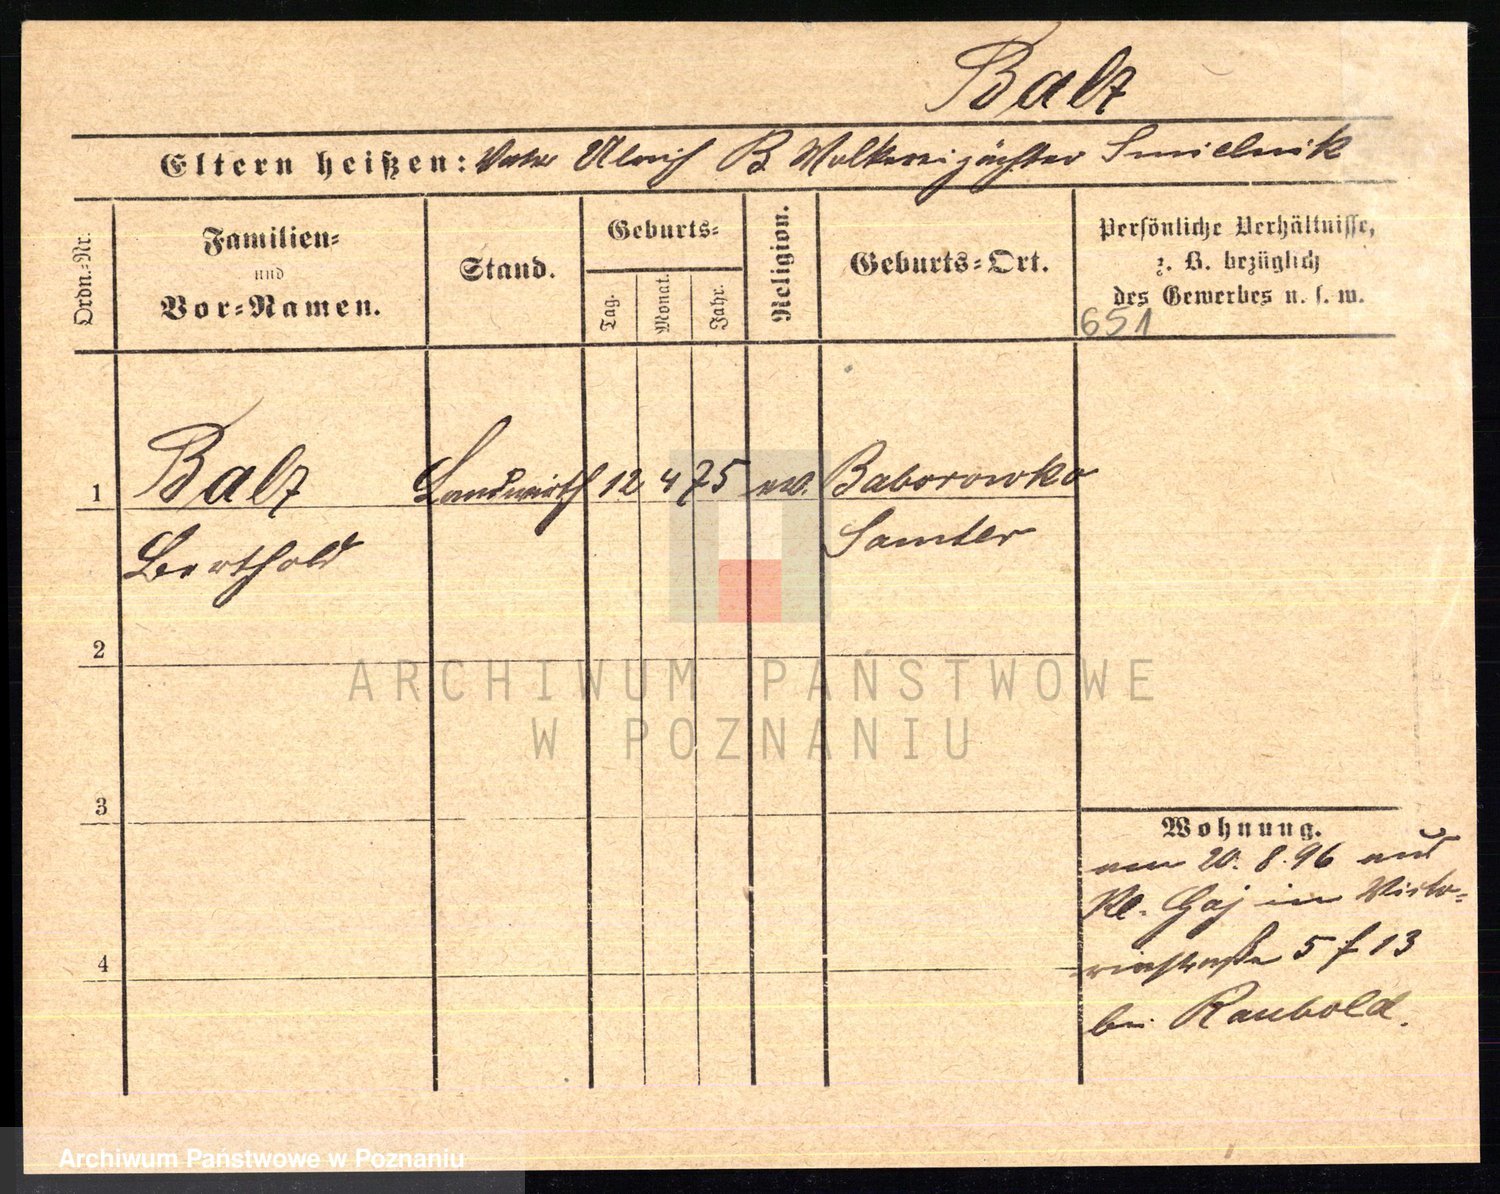 Balz
Eltern heißen: Vater Ulrich B. Molkereipächter Smielnik
Ordn.-Nr.
Familien-
und
Vor-Namen.
Stand.
Geburts-
Tag.
Monat.
Jahr.
Religion.
Geburts-Ort.
Persönliche Verhältnisse,
z. B. bezüglich
des Gewerbes u. s. w.
651
1 Balz Landwirth 12 4 75 ev. Baborowko
Berthold Samter
2
3
4
Wohnung.
am 20. 8. 96 aus
Kl. Gaj in Victo-
riastraße 5 f 13
bei Raubold.
ARCHIWUM PAŃSTWOWE
W POZNANIU
Archiwum Państwowe w Poznaniu